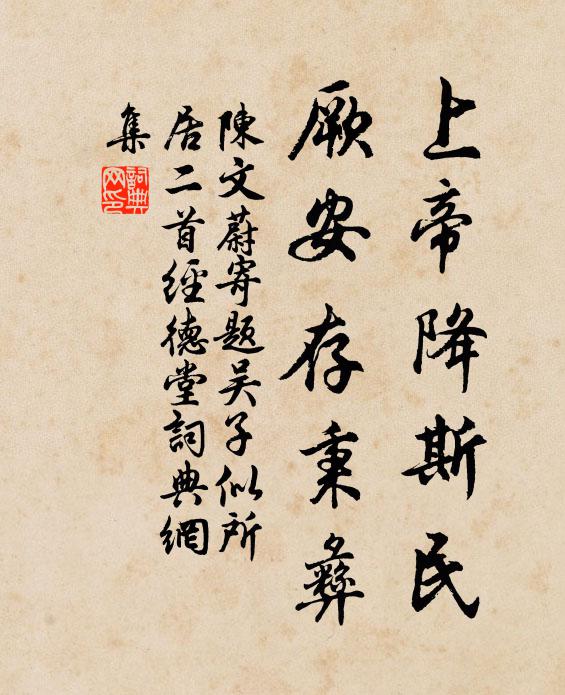 上帝降斯民
厥安存秉彝
陳文蔚寄題吴子似所
居二首經德堂詞典網
集
詞典網印